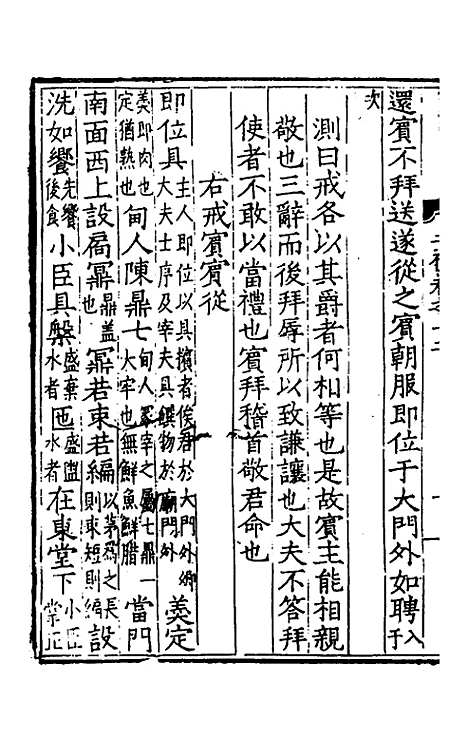 還賓不拜送遂從之賓朝服即位于大門外如聘入于
次
測曰戒各以其爵者何相等也是故賓主能相親
敬也三辭而後拜辱所以致謙讓也大夫不答拜
使者不敢以當禮也賓拜稽首敬君命也
右戒賓賓從
即位具主人即位以具擯者俟君於大門外卿大夫士序及宰夫具饌物於廟門外羹定
羹即肉也定猶熟也甸人陳鼎七甸人冢宰之屬七鼎一大牢也無鮮魚鮮腊當門
南面西上設扃鼏鼎蓋也鼏若束若編以茅為之長則束短則編設
洗如饗先饗後食小臣具槃盛棄水者匜盛盥水者在東堂下小臣掌正